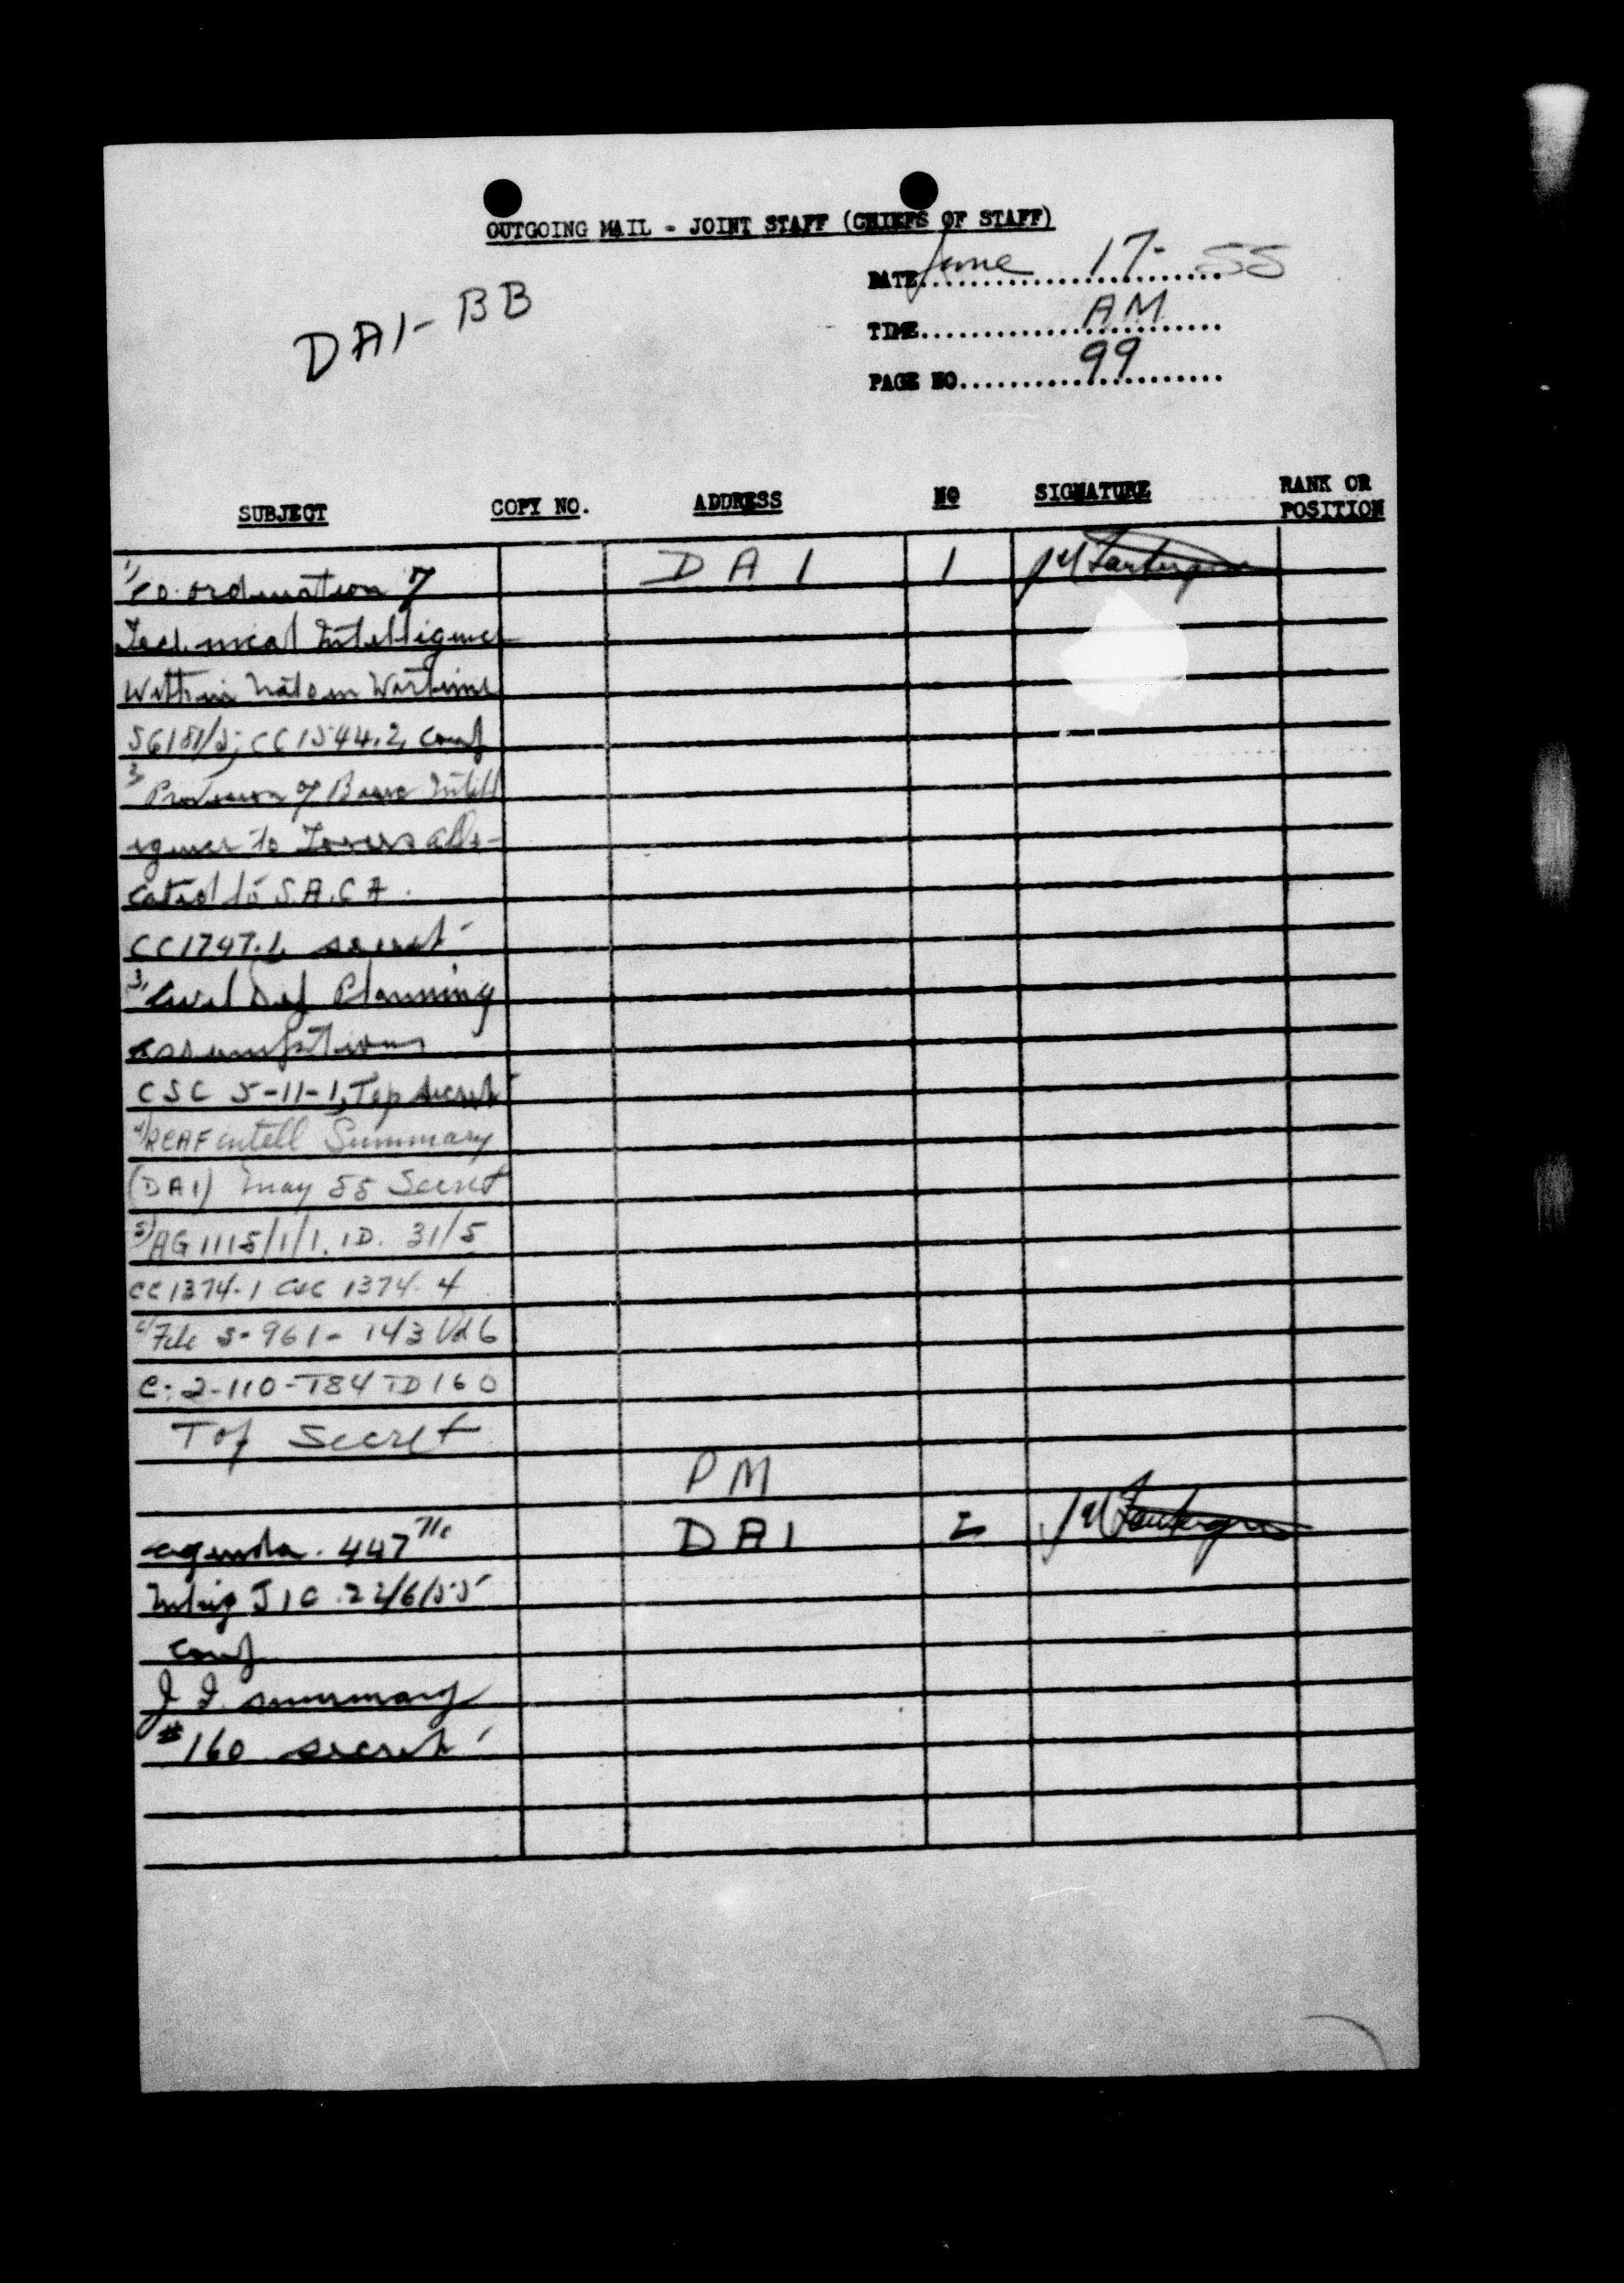 OUTGOING MAIL - JOINT STAFF (CHIEFS OF STAFF)
DATE June 17- 55
DAI-BB
TIME AM
PAGE NO 99
SUBJECT COPY NO. ADDRESS NO SIGNATURE RANK OR POSITION
1) Co-ordination of DAI 1
Technical Intelligence
Within Nato in Wartime
CC1544.2, Conf
Provision of Basic Intell
igence to Forces allo-
cated to S.A.C.A.
CC1747.1 secret
3, Civil Def Planning
assumptions
CSC 5-11-1, Top Secret
4) RCAF intell Summary
(DAI) May 55 Secret
5) AG 1115/1/1. ID. 31/5
CC 1374-1 CSC 1374.4
6) File S-961-143 Vol 6
C: 2-110-T84 TD 160
Top Secret
PM
agenda. 447th DAI 2
Mtg JIC 22/6/55
Conf
J I. summary
#160 secret